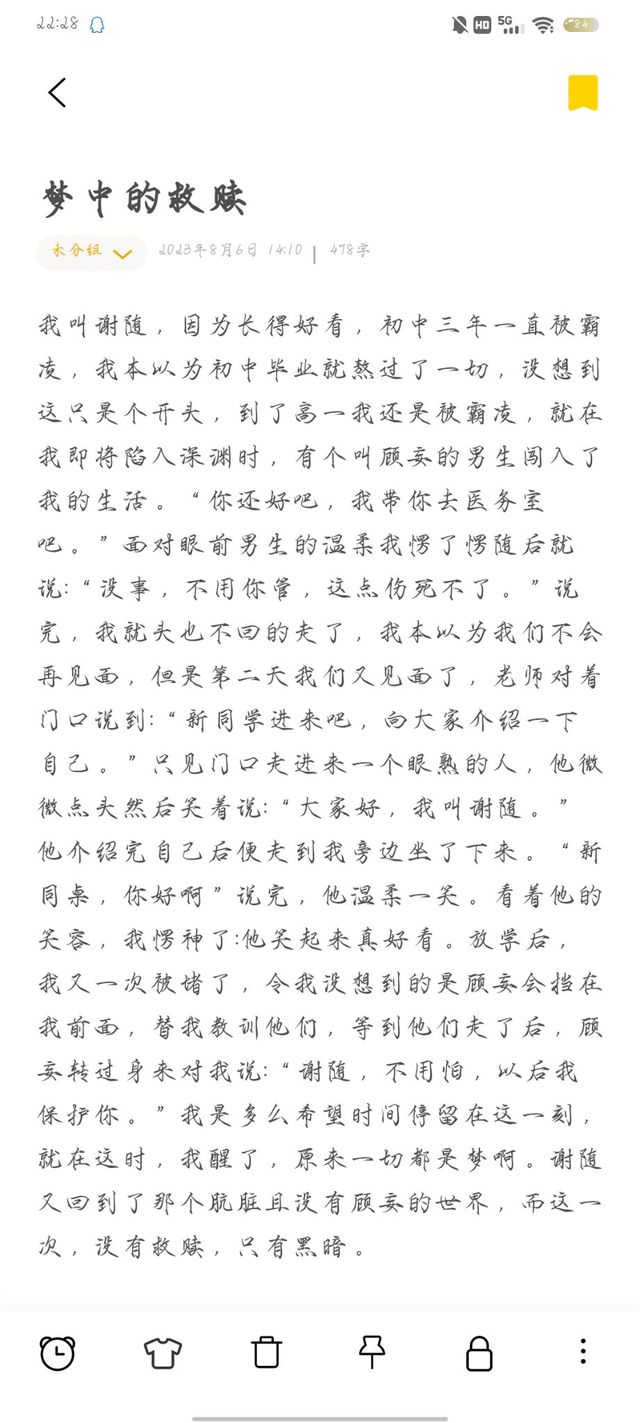 22:28
HD 5G 84
梦中的救赎
未分组
2023年8月6日 14:10 | 478字
我叫谢随，因为长得好看，初中三年一直被霸
凌，我本以为初中毕业就熬过了一切，没想到
这只是个开头，到了高一我还是被霸凌，就在
我即将陷入深渊时，有个叫顾妄的男生闯入了
我的生活。“你还好吧，我带你去医务室
吧。”面对眼前男生的温柔我愣了愣随后就
说:“没事，不用你管，这点伤死不了。”说
完，我就头也不回的走了，我本以为我们不会
再见面，但是第二天我们又见面了，老师对着
门口说到:“新同学进来吧，向大家介绍一下
自己。”只见门口走进来一个眼熟的人，他微
微点头然后笑着说:“大家好，我叫谢随。”
他介绍完自己后便走到我旁边坐了下来。“新
同桌，你好啊”说完，他温柔一笑。看着他的
笑容，我愣神了:他笑起来真好看。放学后，
我又一次被堵了，令我没想到的是顾妄会挡在
我前面，替我教训他们，等到他们走了后，顾
妄转过身来对我说:“谢随，不用怕，以后我
保护你。”我是多么希望时间停留在这一刻，
就在这时，我醒了，原来一切都是梦啊。谢随
又回到了那个肮脏且没有顾妄的世界，而这一
次，没有救赎，只有黑暗。